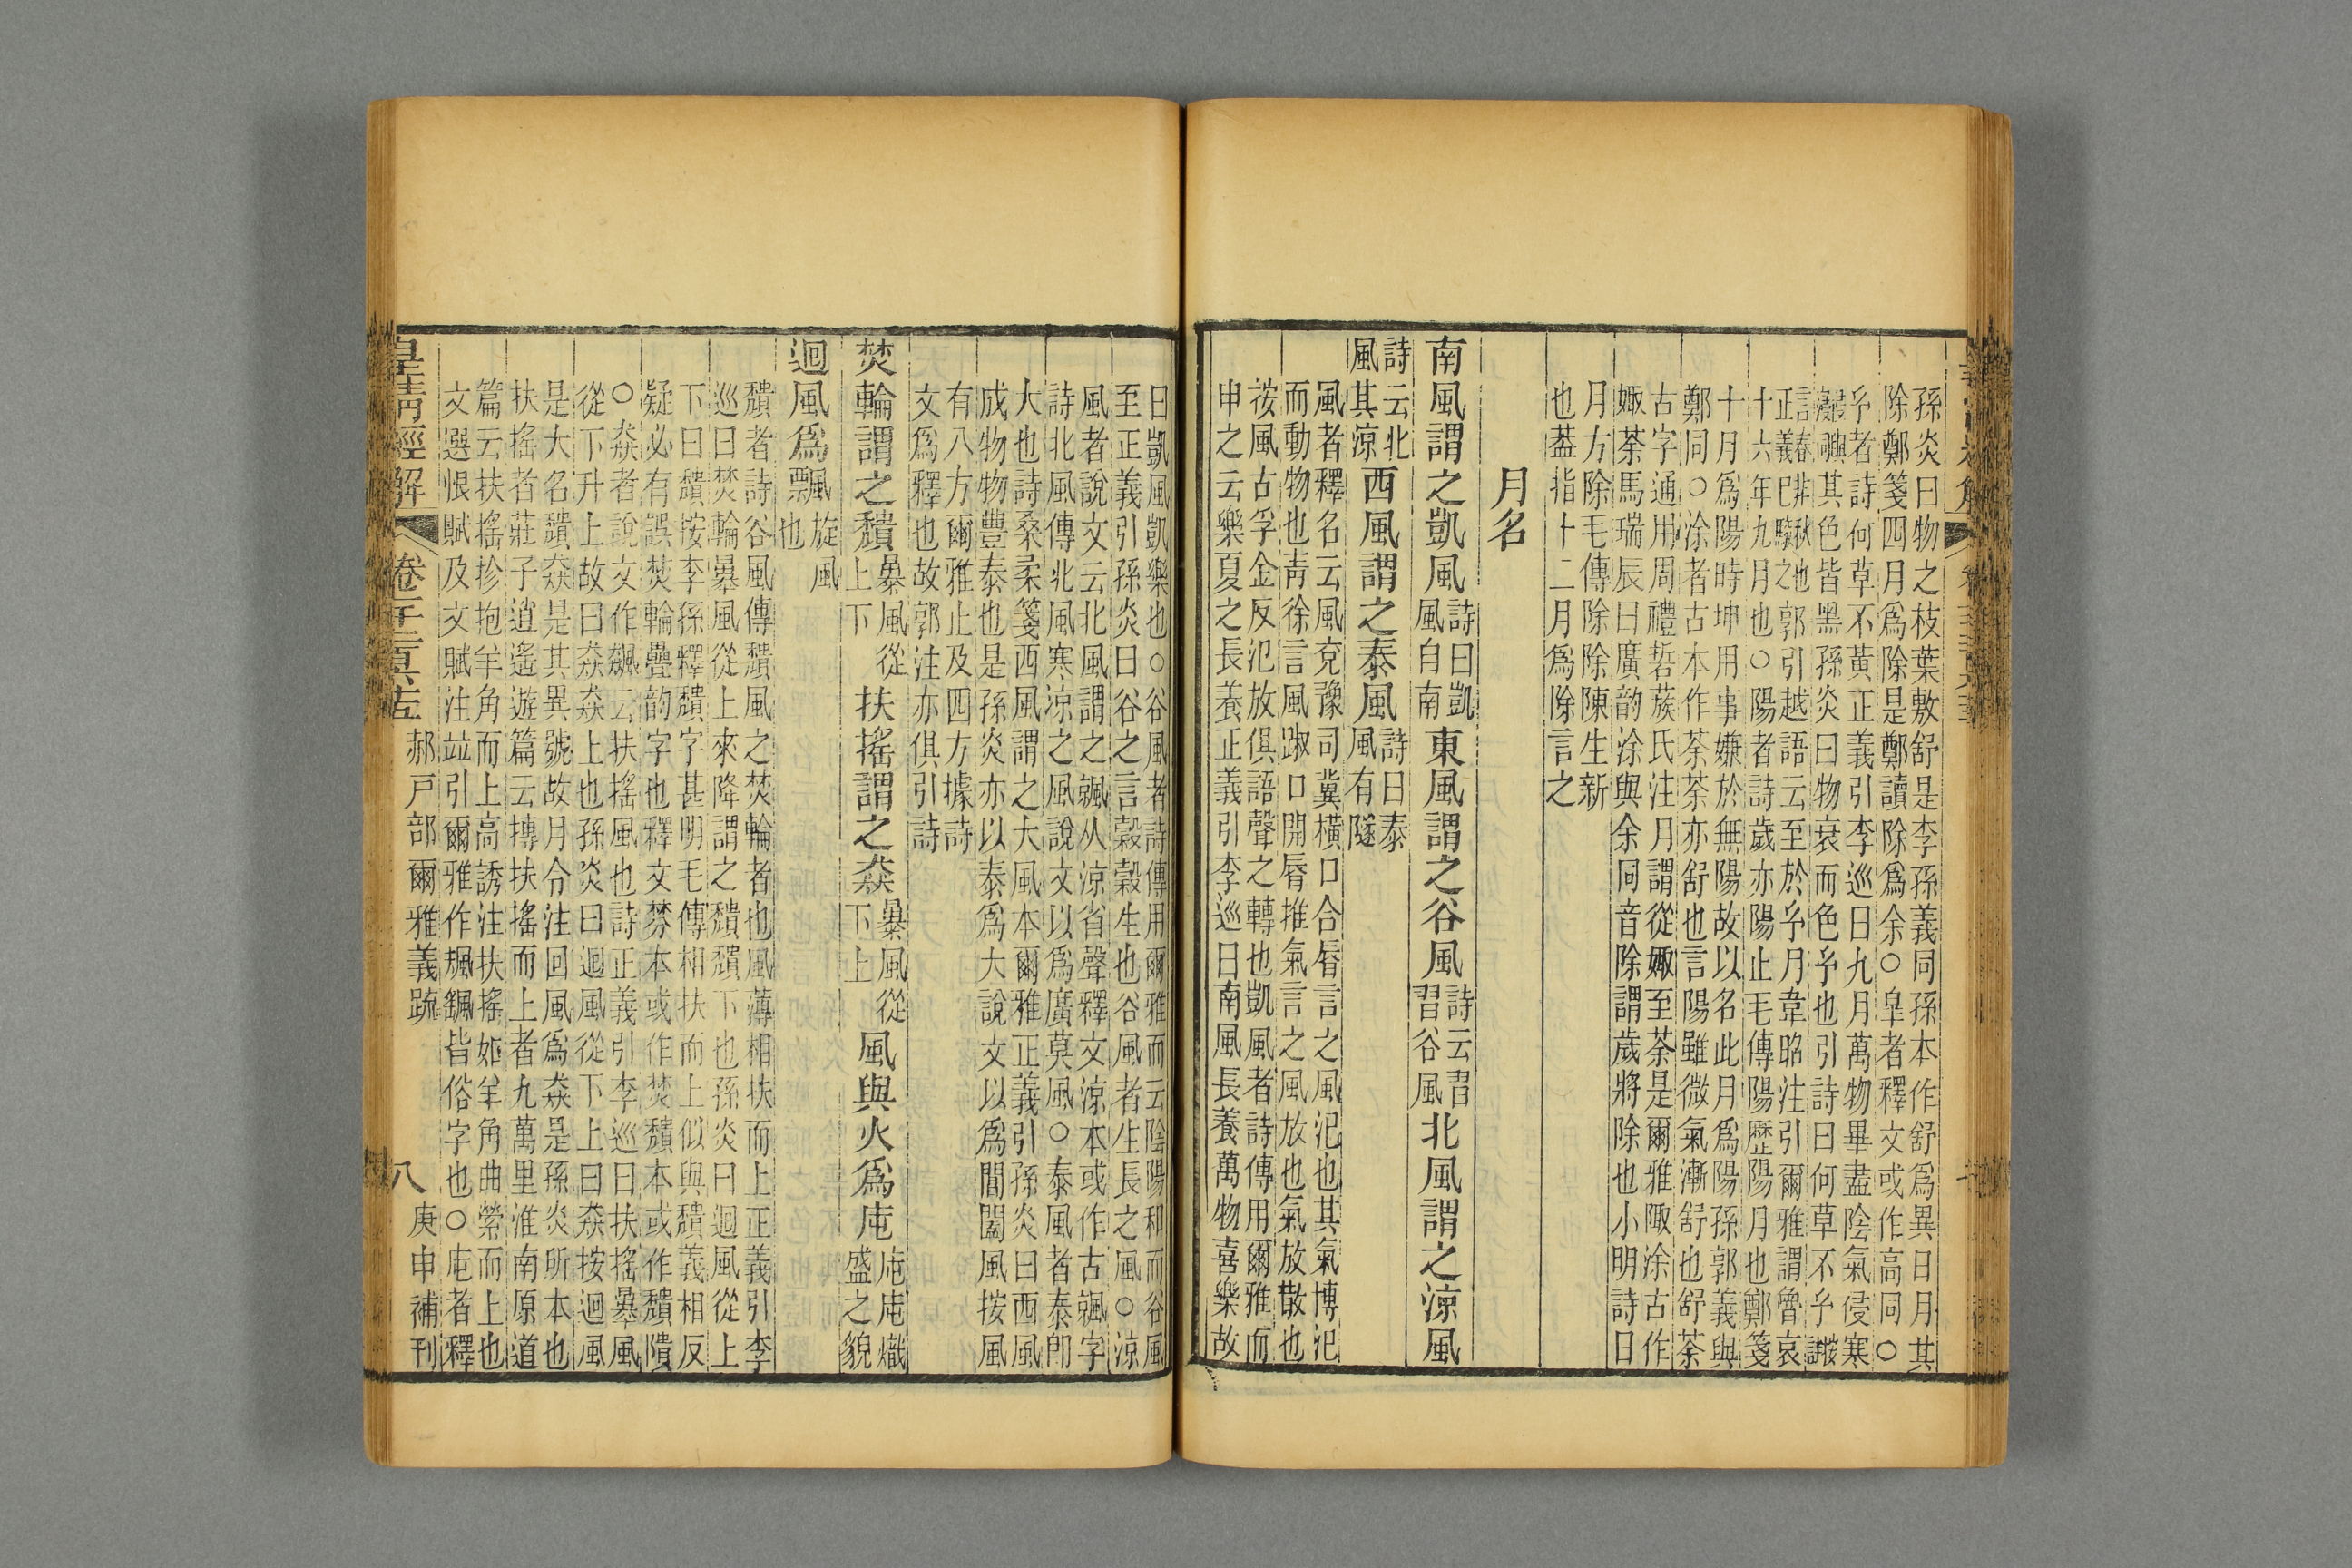 孫炎曰物之枝葉敷舒是李孫義同孫本作舒爲異日月其
除鄭箋四月爲除是鄭讀除爲余○皐者釋文或作高同○
者詩何草不黃正義引李巡曰九月萬物畢盡陰氣侵寒
其色皆黑孫炎曰物衰而色𤣥也引詩曰何草不𤣥
之郭引越語云至於𤣥月韋昭注引爾雅謂魯哀
十六年九月也○陽者詩歲亦陽止毛傳陽歷陽月也鄭箋
十月爲陽時坤用事嫌於無陽故以名此月爲陽孫郭義與
鄭同○涂者古本作荼荼亦舒也言陽雖微氣漸舒也舒荼
古字通用周禮硩蔟氏注月謂從娵至荼是爾雅陬涂古作
娵荼馬瑞辰曰廣韵涂與余同音除謂歲將除也小明詩日
月方除毛傳除除陳生新
也葢指十二月爲除言之
月名
南風謂之凱風詩曰凱風自南東風謂之谷風詩云習習谷風北風謂之涼風
詩云北風其涼西風謂之泰風詩曰泰風有隧
風者釋名云風兗豫司冀橫口合脣言之風氾也其氣博氾
而動物也靑徐言風踧口開脣推氣言之風放也氣放散也
按風古孚金反氾放俱語聲之轉也凱風者詩傳用爾雅而
申之云樂夏之長養正義引李巡曰南風長養萬物喜樂故
曰凱風凱樂也○谷風者詩傳用爾雅而云陰陽和而谷風
至正義引孫炎曰谷之言穀穀生也谷風者生長之風○涼
風者說文云北風謂之飆从涼省聲釋文涼本或作古飆字
詩北風傳北風寒涼之風說文以爲廣莫風○泰風者泰卽
大也詩桑柔箋西風謂之大風本爾雅正義引孫炎曰西風
成物物豐泰也是孫炎亦以泰爲大說文以爲閶闔風按風
有八方爾雅止及四方據詩
文爲釋也故郭注亦俱引詩
焚輪謂之穨暴風從上下扶搖謂之猋暴風從下上風與火爲庉庉庉熾盛之貌
迴風爲飄旋風也
穨者詩谷風傳穨風之焚輪者也風薄相扶而上正義引李
巡曰焚輪暴風從上來降謂之穨穨下也孫炎曰迴風從上
下曰穨按李孫釋穨字甚明毛傳相扶而上似與穨義相反
疑必有誤焚輪疊韵字也釋文棼本或作焚穨本或作穨隤
○猋者說文作飆云扶搖風也詩正義引李巡曰扶搖暴風
從下升上故曰猋猋上也孫炎曰迴風從下上曰猋按迴風
是大名穨猋是其異號故月令注回風爲猋是孫炎所本也
扶搖者莊子逍遙遊篇云摶扶搖而上者九萬里淮南原道
篇云扶搖抮抱羊角而上高誘注扶搖如羊角曲縈而上也
文選恨賦及文賦注竝引爾雅作楓飆皆俗字也○庉者釋
皇淸經解 卷千二百五十五 郝戸部爾雅義疏 八 庚申補刊